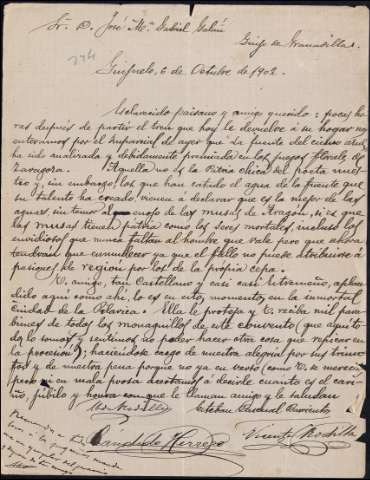 Sr. D. José Mª Gabriel Galán
Guijo de Granadilla.
Guijuelo, 6 de Octubre de 1902.
Esclarecido paisano y amigo querido: pocas ho-
ras después de partir el tren que hoy le devuelve á su hogar nos
enteramos por el Imparcial de ayer que La fuente del
ha sido analizada y debidamente premiada en los juegos florales de
Zaragoza. Aquella no es la Patria chica del poeta nues-
tro y, sin embargo, los que han catado el agua de la fuente que
su talento ha creado, vienen á declarar que es la mejor de las
aguas, sin temor al enojo de las musas de Aragón, si es que
las musas tienen patria como los seres mortales, incluso los
envidiosos que nunca faltan al hombre que vale pero que ahora
tendrán que enmudecer ya que el fallo no puede atribuirse á
pasiones de region por los de la propia cepa.
V. amigo, tan Castellano y casi casi Extremeño, aplau-
dido aquí como ahí, lo es en estos momentos en la inmortal
ciudad de la Pilarica. Ella le proteja y V. reciba mil para-
bienes de todos los monaguillos de este convento (que aquí to-
do lo somos y sentimos no poder hacer otra cosa que repicar en
la procesión), haciéndose cargo de nuestra alegría por sus triun-
fos y de nuestra pena porque no ya en verso (como V. se merece)
pero ni en mala prosa acertamos á decirle cuanto es el cari-
ño, júbilo y honra con que le llaman amigo y le saludan
Esteban
Cándido Herrero
Vicente Rodilla